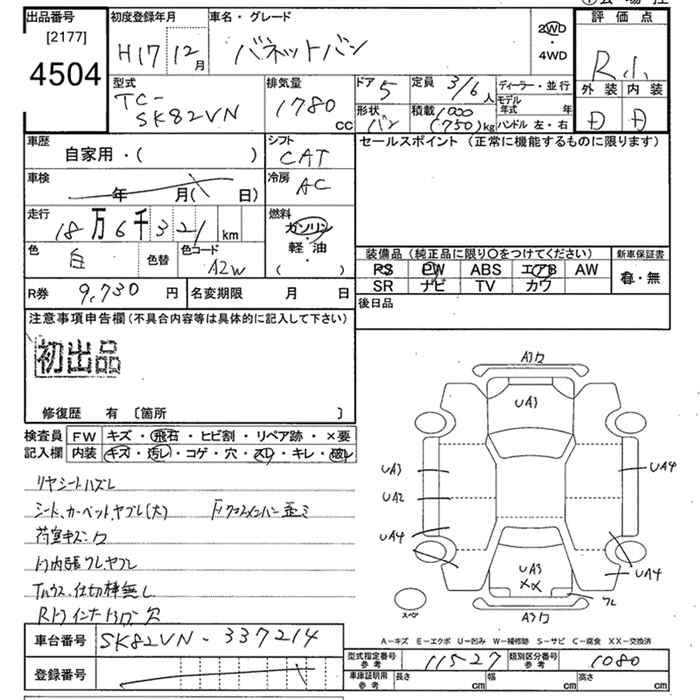 出品番号
[2177]
4504
初度登録年月
H17 12月
車名・グレード
バネットバン
2WD
・
4WD
評価点
R 小
外装 内装
D D
型式
TC-
SK82VN
排気量
1780 cc
ドア
5
形状
バン
定員 3/6人
積載 1000
(750)kg
ディーラー・並行
モデル年式 年
ハンドル 左・右
車歴
自家用・( )
車検
年 月( 日)
走行
18万6千321km
色
白
色替
色コード
A2W
シフト
CAT
冷房
AC
燃料
ガソリン
軽・油
( )
R券 9,730円 名変期限 月 日
セールスポイント (正常に機能するものに限ります)
装備品 (純正品に限り○をつけてください)
新車保証書
PS PW ABS エアB AW
有・無
SR ナビ TV カワ
後日品
注意事項申告欄 (不具合内容等は具体的に記入して下さい)
初出品
修復歴 有 〔箇所 〕
検査員
記入欄
FW キズ・飛石・ヒビ割・リペア跡・×要
内装 キズ・汚レ・コゲ・穴・スレ・キレ・破レ
リヤシートハズレ
シート、カーペットヤブレ(大)
荷室キズ
内張ワレヤブレ
仕切棒無し
穴
A3
UA3
UA3
UA2
UA4
UA4
UA3
XX
UA4
ワレ
A3
スペア
A-キズ E-エクボ U-凹み W-補修跡 S-サビ C-腐食 XX-交換済
車台番号 SK82VN-337214
登録番号
型式指定番号
参考
11527
類別区分番号
参考
1080
車庫証明用
参考
長さ cm 幅 cm 高さ cm